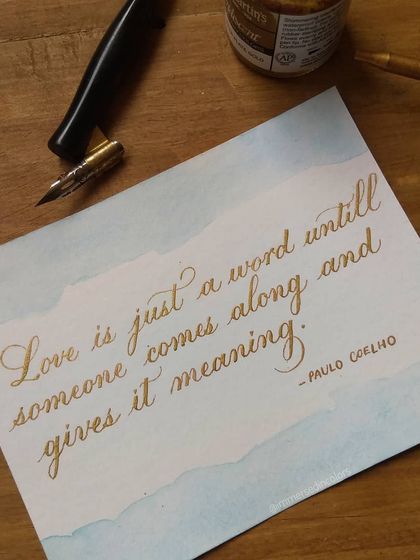 Martin's
Love is just a word untill
someone comes along and
gives it meaning.
-PAULO COELHO
@immersedincolors